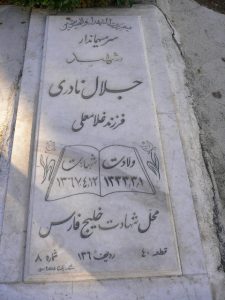 سرمیهماندار
شهید
جلال نادری
فرزند غلامعلی
ولادت شهادت
۱۳۳۳،۳،۱ ۱۳۶۷،۴،۱۲
محل شهادت خلیج فارس
قطعه ۴۰ ردیف ۱۳۶ شماره ۸